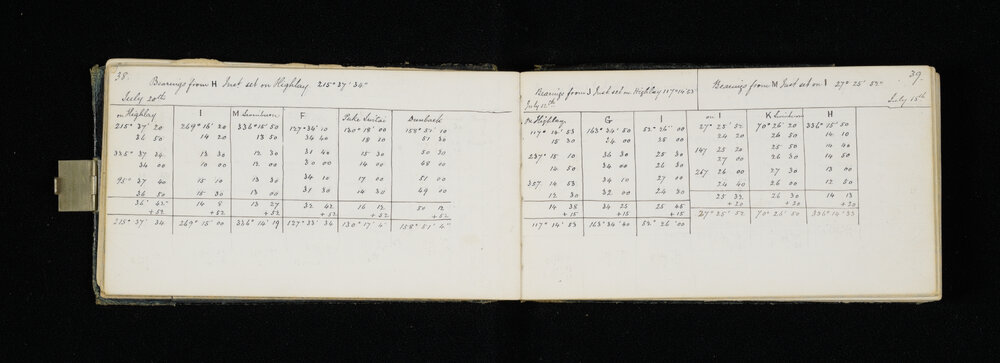 38.
Bearings from H Inst set on Highlay 215° 37' 34"
July 20th
on Highlay I M F Dunback
215° 37' 20 269° 16' 20 336° 15' 50 127° 34' 10 130° 18' 00 158° 51' 10
36 50 14 20 13 50 34 40 18 10 51 30
335° 37 34 13 30 13 30 31 40 15 30 50 30
34 00 10 00 13 00 30 00 14 00 48 10
95° 37 40 15 10 13 30 34 10 17 00 51 00
36 50 15 30 13 00 31 30 14 30 49 10
36' 42" 14 8 13 27 32 42 16 12 50 12
+52 +52 +52 +52 +52 +52
215° 37' 34 269° 15' 00 336° 14' 19 127° 33' 34 130° 17' 4" 158° 51' 4"
39.
Bearings from J Inst set on Highlay 117° 14' 53"
July 12th
on Highlay G I
117° 14' 53 163° 34' 50 52° 26' 00
15 30 24 00 28 00
237° 15 10 36 30 25 30
14 50 34 00 26 30
357. 14 53 34 10 27 00
12 30 32 00 24 30
14 38 34 25 25 45
+15 +15 +15
117° 14' 53 163° 34' 40 52° 26' 00
Bearings from M Inst set on I 27° 25' 52"
July 13th
on I K H
27° 25' 52 70° 26' 20 336° 15' 50
24 20 25 50 14 50
147 25 30 26 30 14 40
27 00 26 50 14 50
267 26 00 27 30 13 00
24 40 26 00 12 50
25 32 26 30 14 13
+20 +20 +20
27° 25' 52 70° 26' 50 336° 14' 33